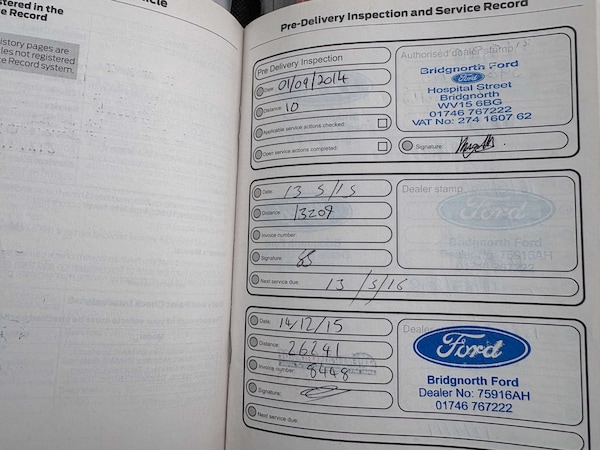 stered in the
e Record
istory pages are
les not registered
e Record system.
Pre-Delivery Inspection and Service Record
Pre Delivery Inspection
Date: 01/09/2014
Distance: 10
Applicable service actions checked:
Open service actions completed:
Authorised dealer stamp
Bridgnorth Ford
Ford
Hospital Street
Bridgnorth
WV15 6BG
01746 767222
VAT No: 274 1607 62
Signature:
Date: 13 5/15
Distance: 13209
Invoice number:
Signature:
Next service due: 13/5/16
Dealer stamp
Ford
Bridgnorth Ford
Dealer No: 75916AH
01746 767222
Date: 14/12/15
Distance: 26241
Invoice number: 8448
Signature:
Next service due:
Dealer
Ford
Bridgnorth Ford
Dealer No: 75916AH
01746 767222